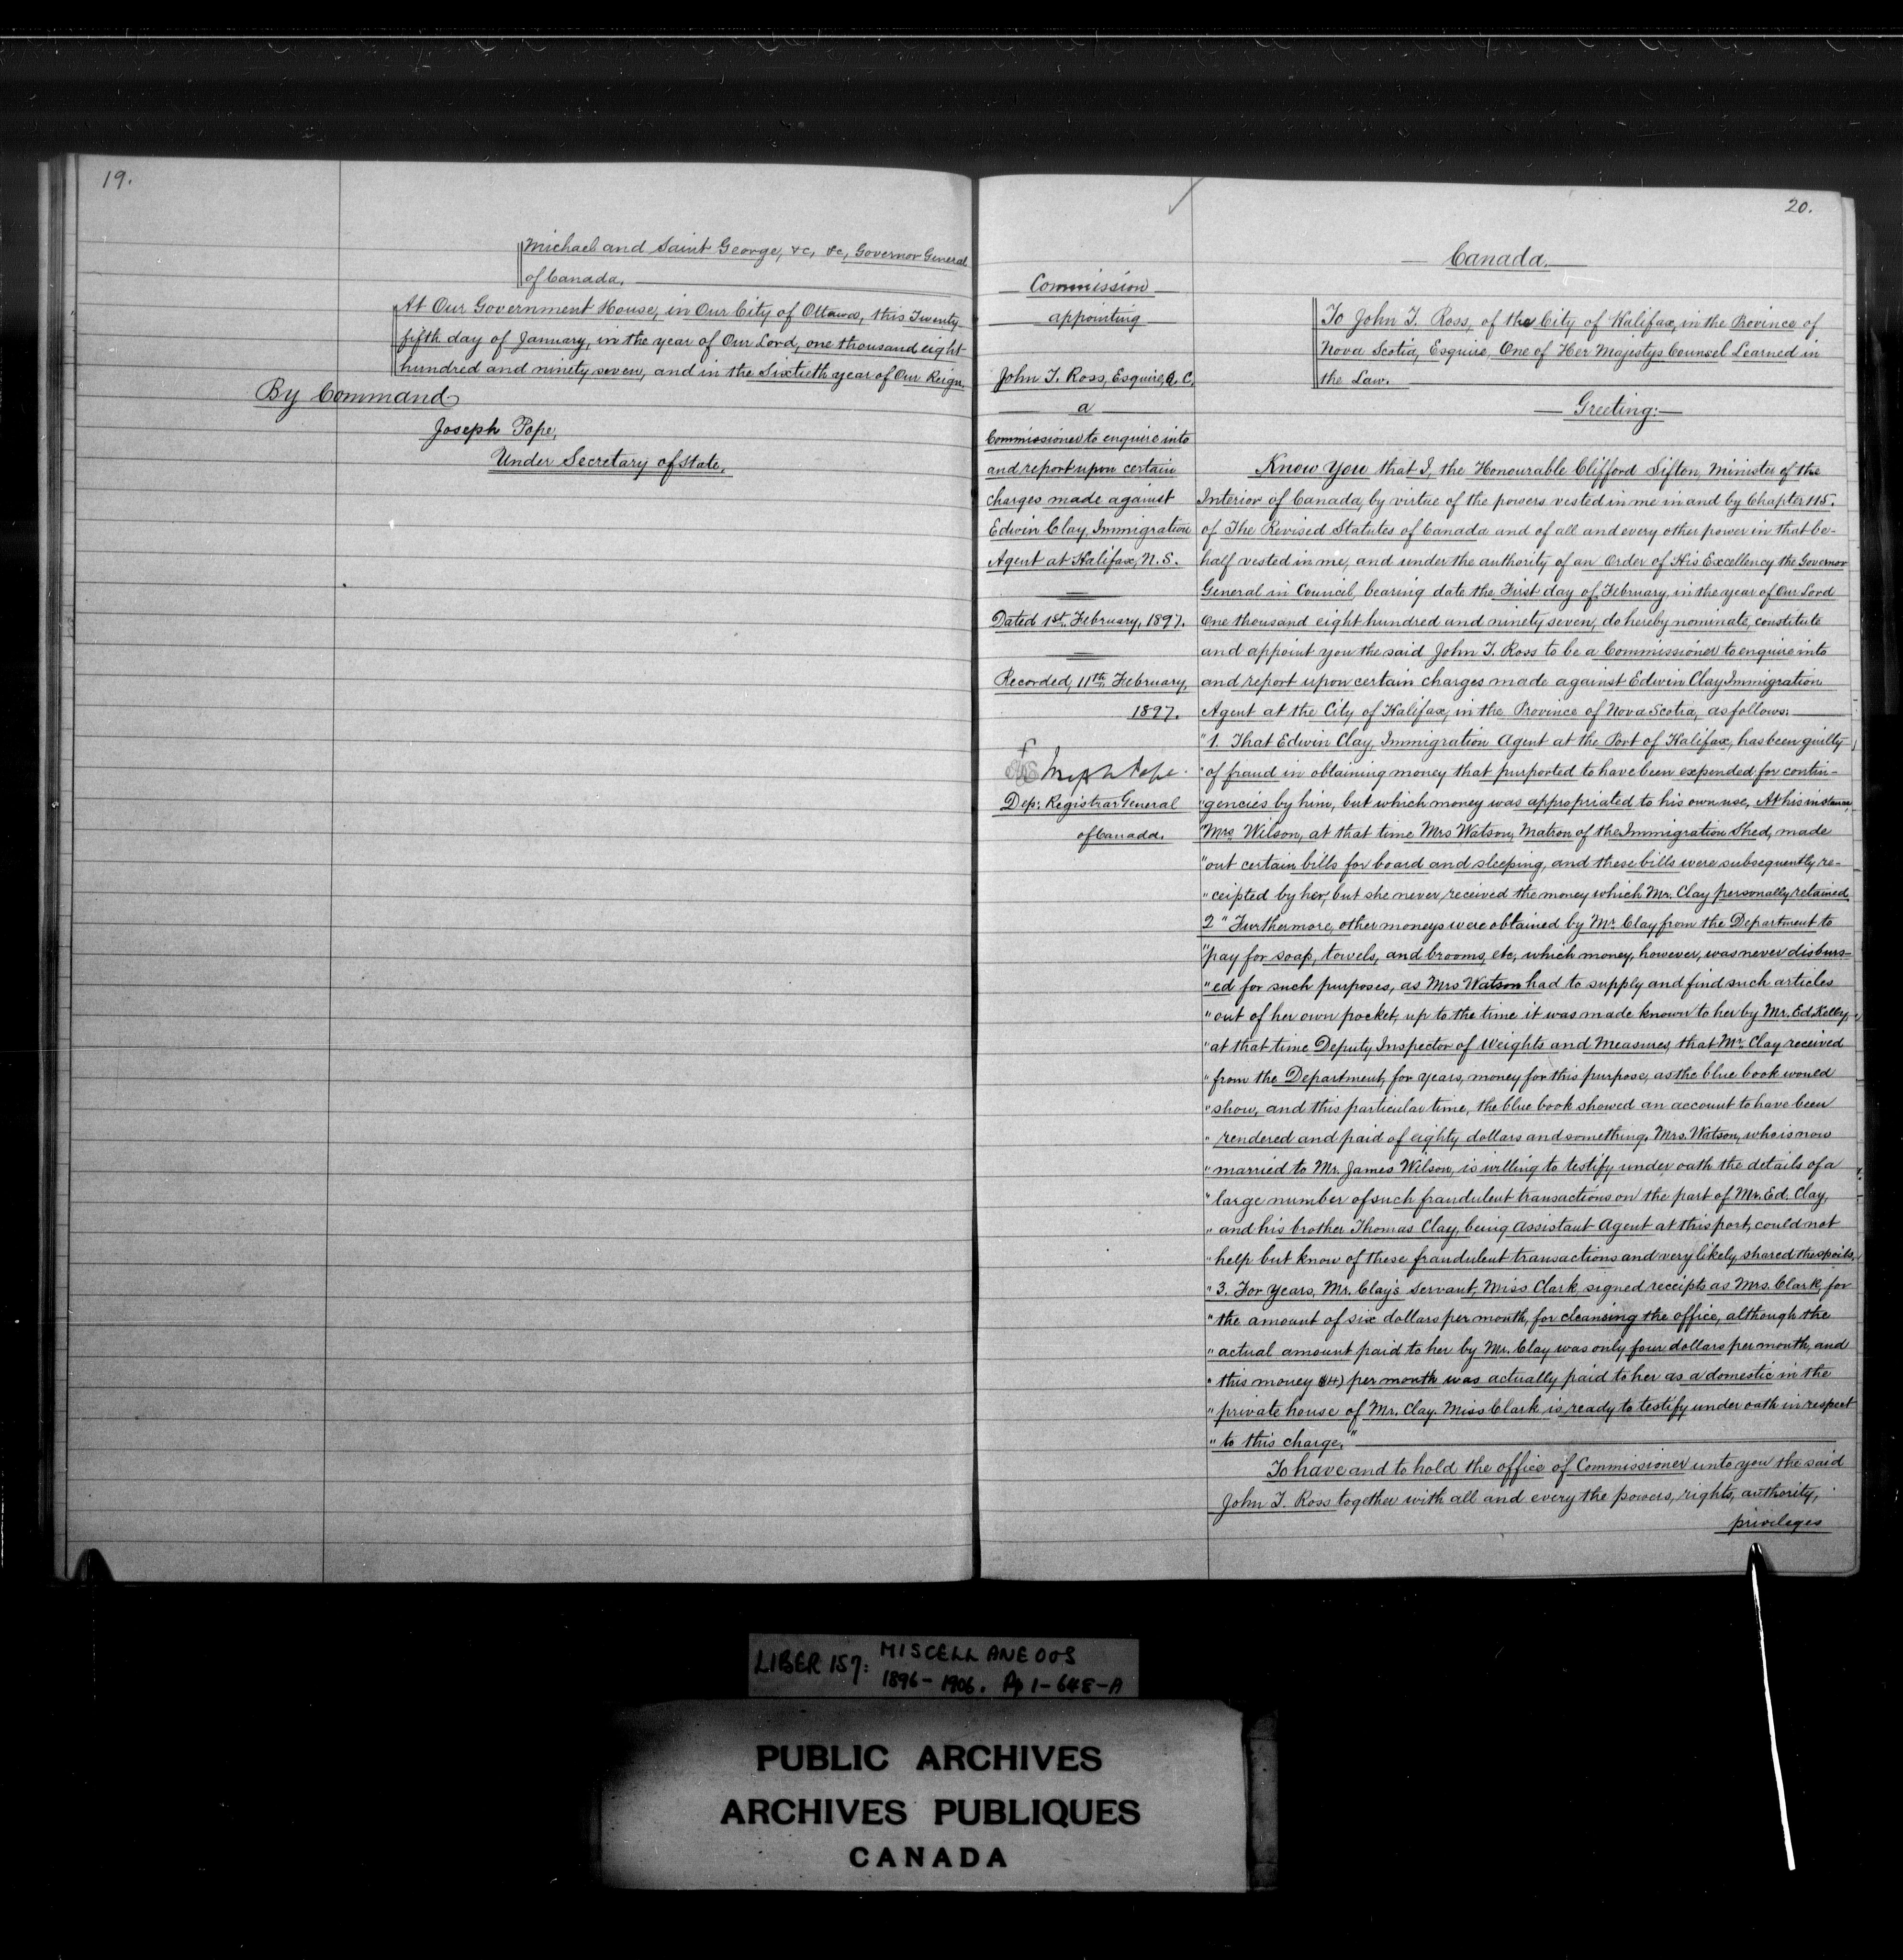 19.
Michael and Saint George, &c, &c, Governor General
of Canada.
At Our Government House, in Our City of Ottawa, this Twenty
fifth day of January, in the year of Our Lord, one thousand eight
hundred and ninety seven, and in the Sixtieth year of Our Reign.
By Command
Joseph Pope,
Under Secretary of State.
20.
Commission
appointing
John T. Ross, Esquire, Q. C.
a
Commissioner to enquire into
and report upon certain
charges made against
Edwin Clay, Immigration
Agent at Halifax, N. S.
Dated 1st February, 1897.
Recorded, 11th February,
1897.
Joseph Pope.
Dep: Registrar General
of Canada.
Canada.
To John T. Ross, of the City of Halifax, in the Province of
Nova Scotia, Esquire, One of Her Majestys Counsel Learned in
the Law.
Greeting:
Know You that I, the Honourable Clifford Sifton, Minister of the
Interior of Canada, by virtue of the powers vested in me in and by Chapter 115.
of The Revised Statutes of Canada and of all and every other power in that be-
half vested in me, and under the authority of an Order of His Excellency the Governor
General in Council, bearing date the First day of February, in the year of Our Lord
One thousand eight hundred and ninety seven, do hereby nominate, constitute
and appoint you the said John T. Ross to be a Commissioner to enquire into
and report upon certain charges made against Edwin Clay Immigration
Agent at the City of Halifax, in the Province of Nova Scotia, as follows:
"1. That Edwin Clay, Immigration Agent at the Port of Halifax, has been guilty
"of fraud in obtaining money that purported to have been expended for contin-
"gencies by him, but which money was appropriated to his own use. At his instance,
"Mrs Wilson, at that time Mrs Watson, Matron of the Immigration Shed, made
"out certain bills for board and sleeping, and these bills were subsequently re-
"ceipted by her, but she never received the money which Mr. Clay personally retained.
2 "Furthermore, other moneys were obtained by Mr. Clay from the Department to
"pay for soap, towels, and brooms, etc, which money, however, was never disburs-
"ed for such purposes, as Mrs Watson had to supply and find such articles
"out of her own pocket, up to the time it was made known to her by Mr. Ed. Kelly,
"at that time Deputy Inspector of Weights and Measures, that Mr. Clay received
"from the Department, for years, money for this purpose, as the blue book would
"show, and this particular time, the blue book showed an account to have been
"rendered and paid of eighty dollars and something. Mrs. Watson, who is now
"married to Mr. James Wilson, is willing to testify under oath the details of a
"large number of such fraudulent transactions on the part of Mr. Ed. Clay,
"and his brother Thomas Clay, being Assistant Agent at this port, could not
"help but know of these fraudulent transactions and very likely shared the spoils.
"3. For Years, Mr. Clay's servant, Miss Clark signed receipts as Mrs. Clark, for
"the amount of six dollars per month, for cleansing the office, although the
"actual amount paid to her by Mr. Clay was only four dollars per month, and
"this money ($4) per month was actually paid to her as a domestic in the
"private house of Mr. Clay. Miss Clark is ready to testify under oath in respect
"to this charge."
To have and to hold the office of Commissioner unto you the said
John T. Ross together with all and every the powers, rights, authority,
privileges
LIBER 157: MISCELLANEOUS
1896-1906. Pp 1-648-A
PUBLIC ARCHIVES
ARCHIVES PUBLIQUES
CANADA